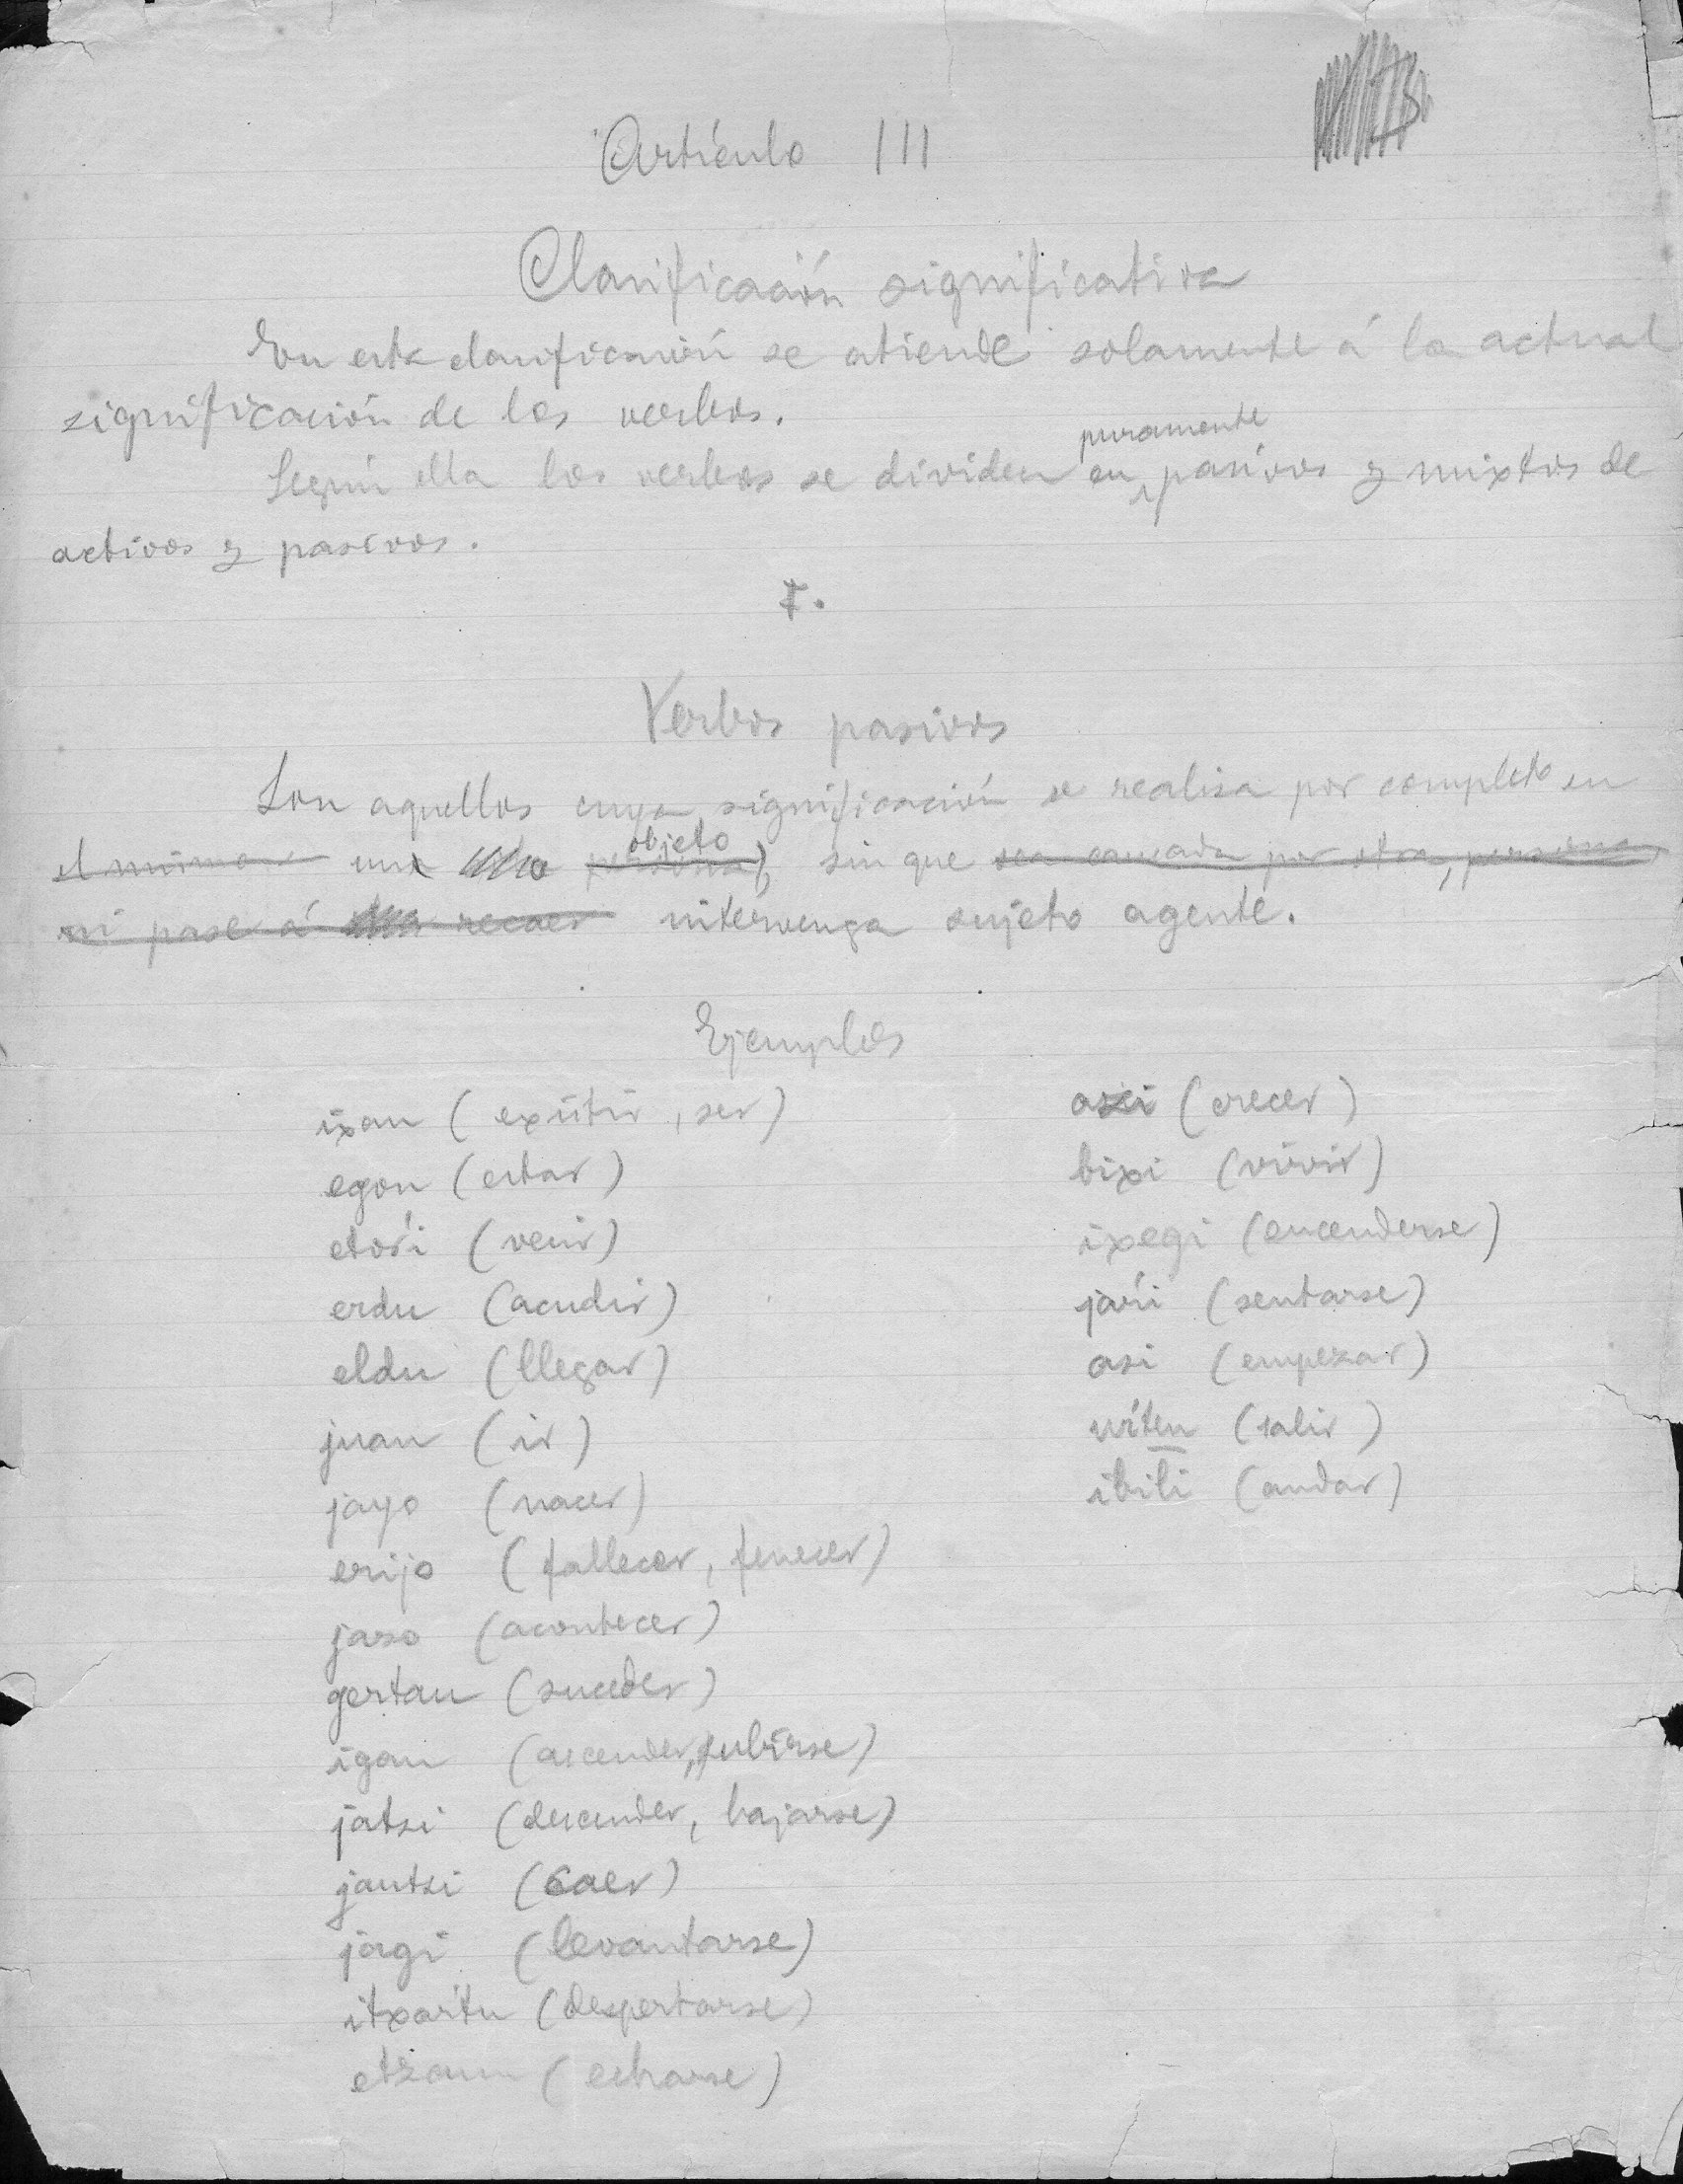 Artículo III
Clasificación significativa
En esta clasificación se atiende solamente á la actual
significación de los verbos.
puramente
Según ella los verbos se dividen en pasivos y mixtos de
activos y pasivos.
I.
Verbos pasivos
Son aquellos cuya significación se realiza por completo en
objeto
el mismo un persona, sin que sea causada por otra, persona,
ni pase á recaer intervenga sujeto agente.
Ejemplos
ixan (existir, ser)
egon (estar)
etoŕi (venir)
erdu (acudir)
eldu (llegar)
juan (ir)
jayo (nacer)
erijo (fallecer, fenecer)
jaso (acontecer)
gertau (suceder)
igan (ascender, subirse)
jatsi (descender, bajarse)
jautsi (caer)
jagi (levantarse)
itxaŕtu (despertarse)
etzaun (echarse)
azi (crecer)
bixi (vivir)
ixegi (encenderse)
jaŕi (sentarse)
asi (empezar)
urten (salir)
ibili (andar)